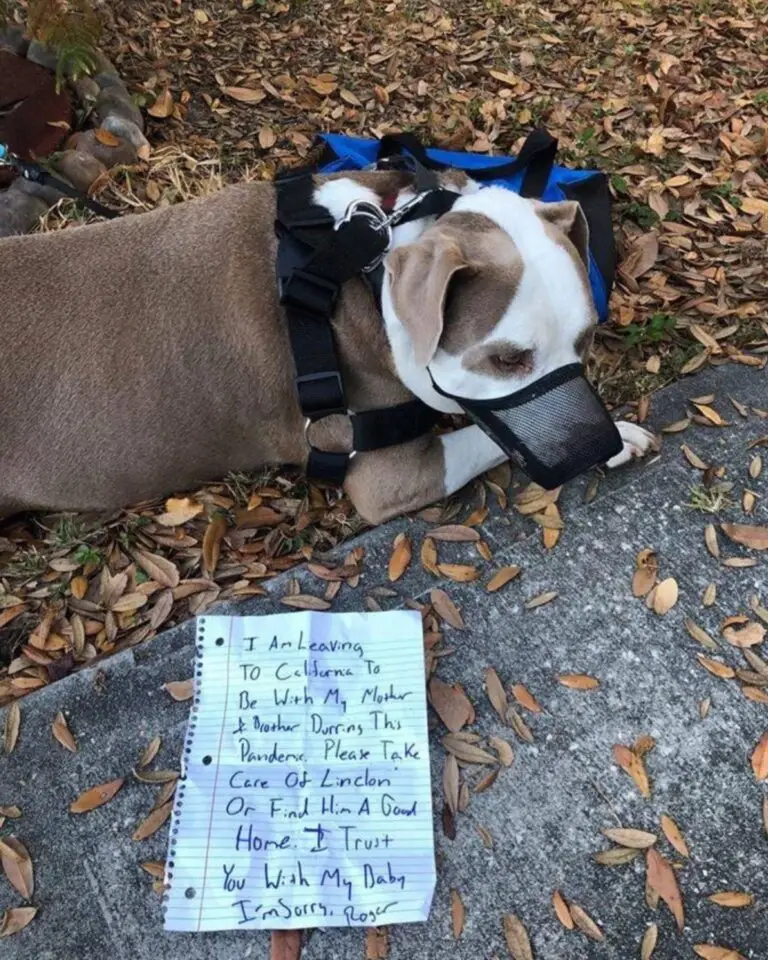 I Am Leaving
To California To
Be With My Mother
& Brother Durring This
Pandemic. Please Take
Care Of Linclon
Or Find Him A Good
Home. I Trust
You With My Baby
I'm Sorry, Roger